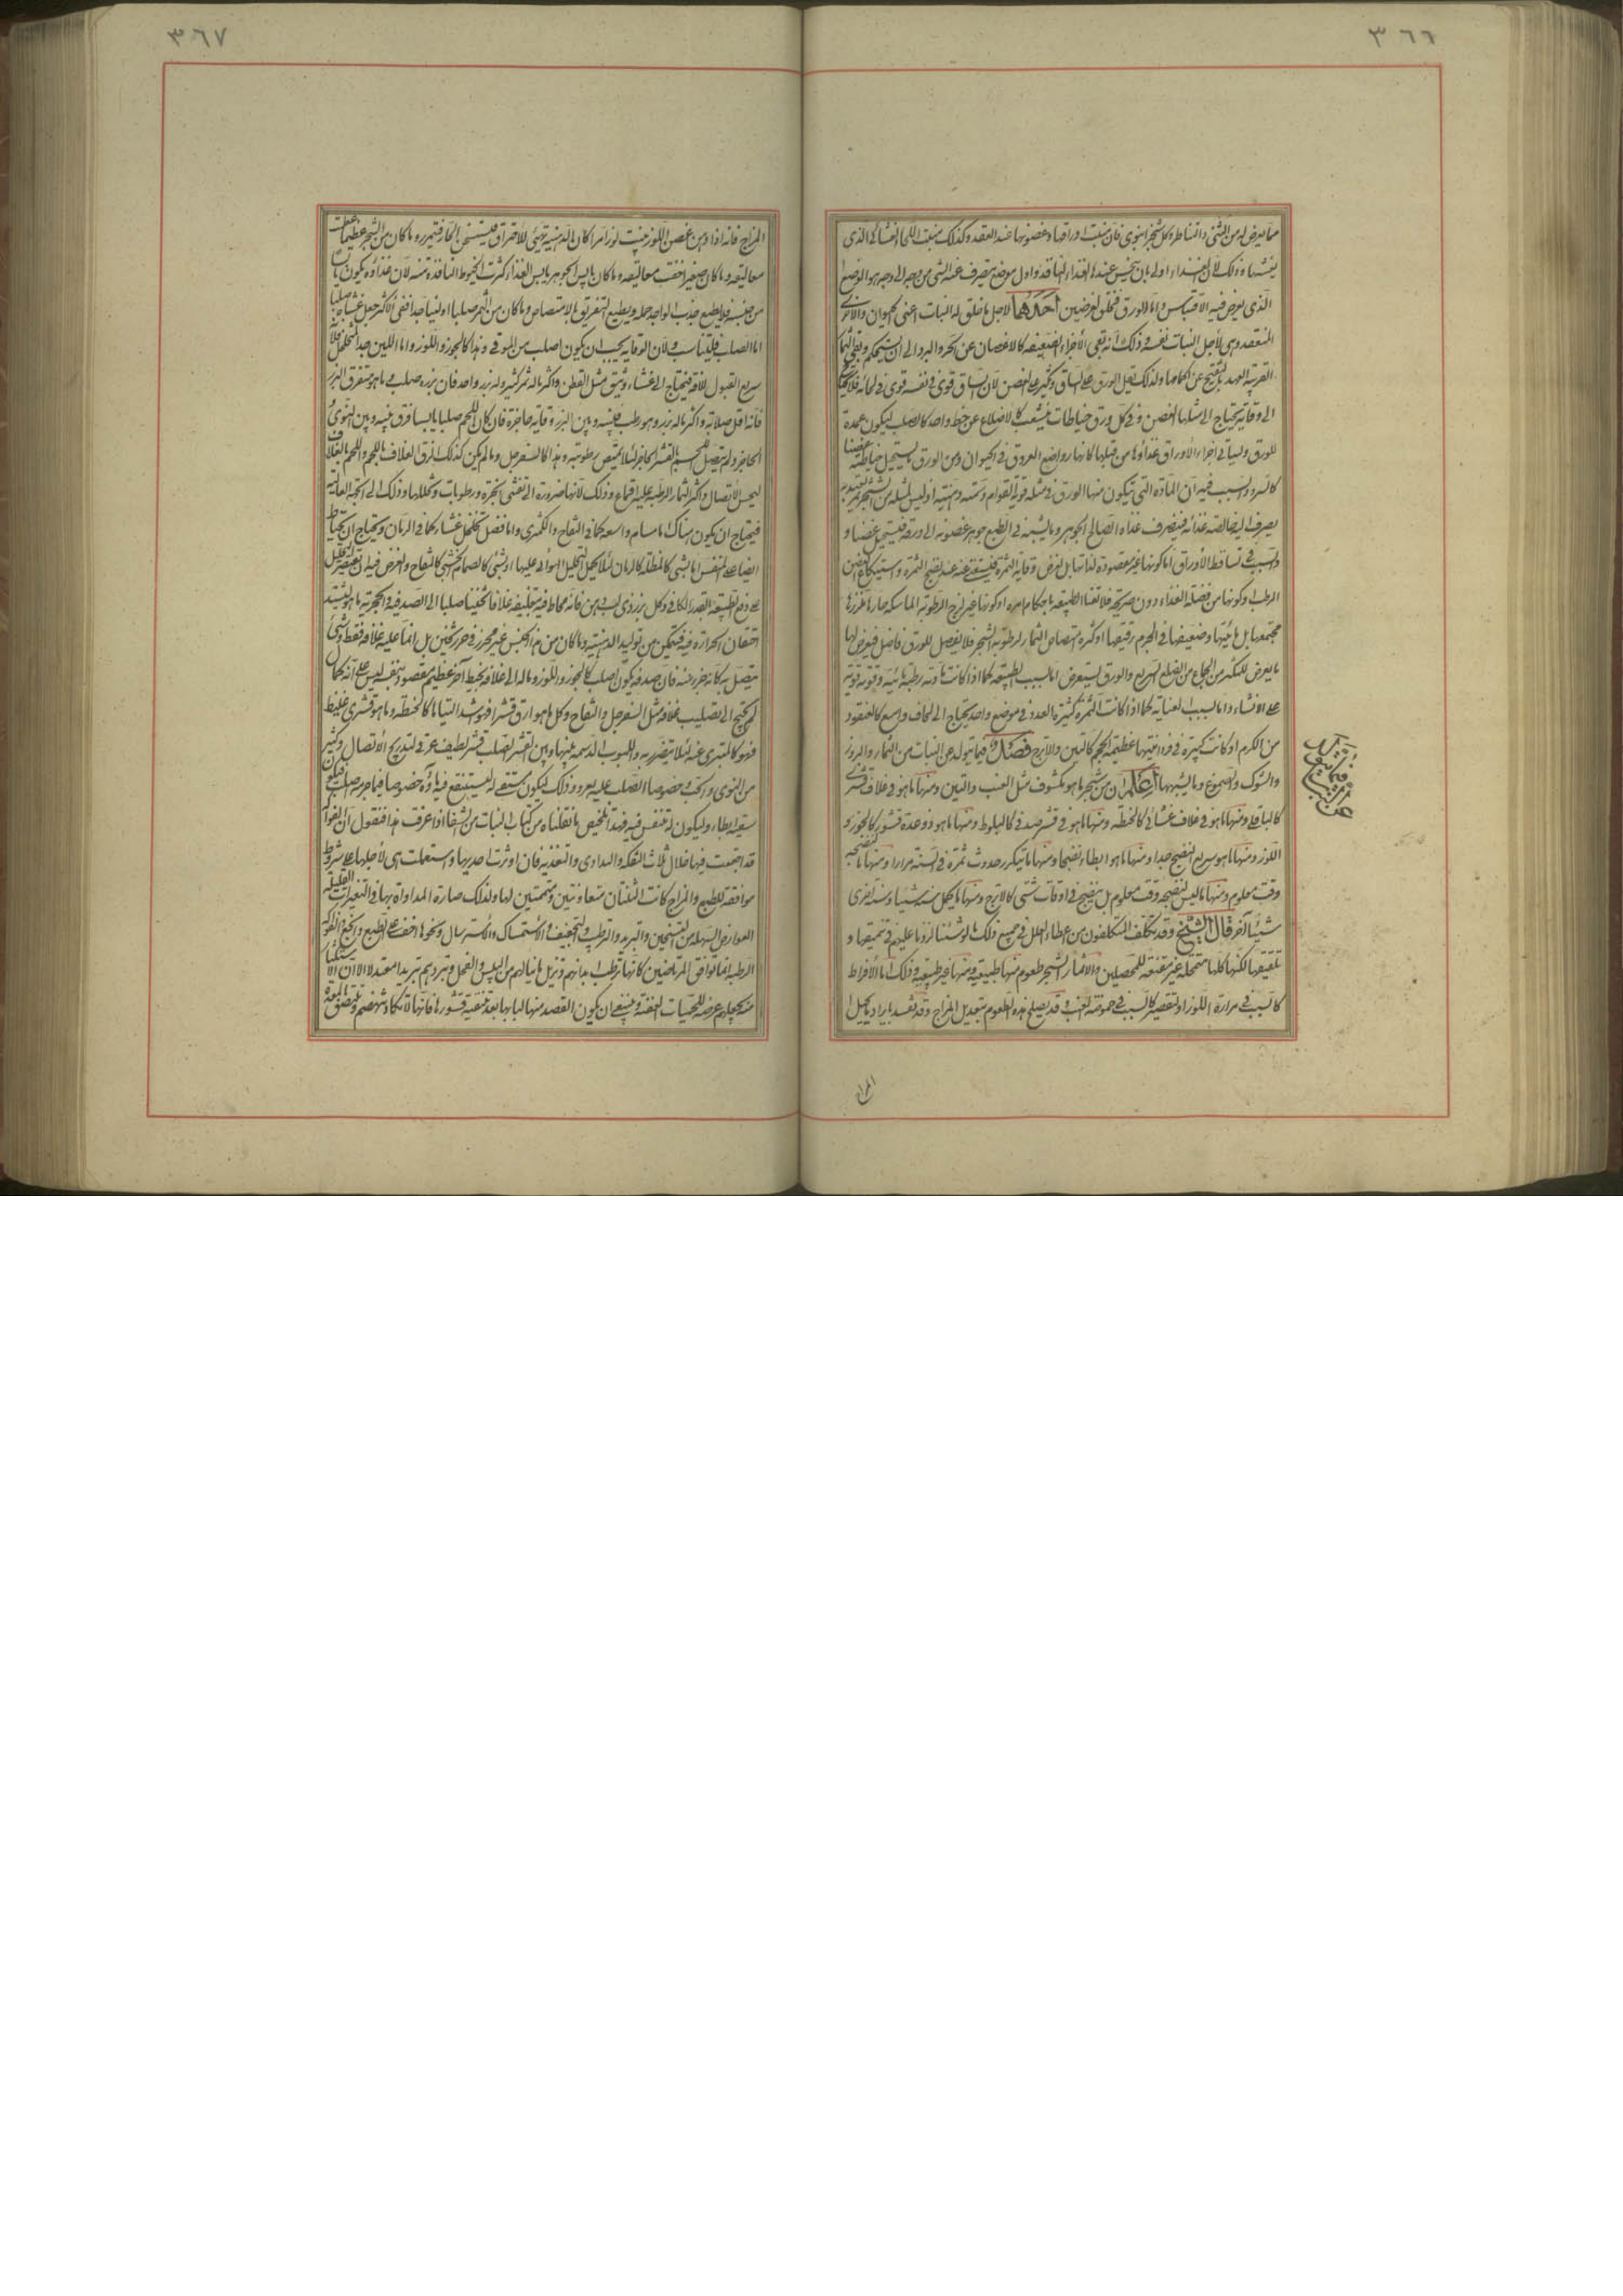 ٣٦٦
مما يعرض له من التثني والتناطر وكل شجر انبوبي فان منبت اوراقها وغصونها عند العقد وكذلك منبت اللحا الغشائي الذي
يغشيها وذلك لان الغذاء اولى بان يحتبس عندها لغذاء لنها قد واول موضع يتصرف عنه الشي من وجه الى وجه هو الموضع
الذي يعرض فيه الاقتباس واما الورق فخلق لغرضين احدهما لاجل ما خلق له النبات اعني الحيوان والاخرى
المنعقدة هي لاجل النبات نفسه وذلك انه يقي الاجزاء الضعيفة كالاغصان عن الحر والبرد الى ان تستحكم ويقي الثمار
القريبة العهد بالتفتح عن اكمامها ولذلك قيل الورق على الساق وكثير على الغصن لان الساق قوى في نفسه قوى في لحائه فلا يحتاج
الى وقاية يحتاج الى مثلها الغصن وفي كل ورق خياطات ينشعب كالاضلاع عن خط واحد كالصلب ليكون عمدة
للورق وليأتي اجزاء الاوراق غذاؤها من قبلها كانها رواضع العروق في الحيوان ومن الورق ما يستحيل خياطته غصنا
كالسرو والسبب فيه ان المادة التي تتكون منها الورق في مثله قوية القوام دسمة دهنية اذ ليس لمثله من الشجر ثمر يعتد به
يصرف اليه خالصة غذائه فينصرف غذاه الصالح الجوهر وما يشبهه في الطبع جوهر غصونه الى ورقه فيستحيل غصنا و
السبب في تساقط الاوراق اما كونها غير مقصودة لذاتها بل لغرض وقاية الثمرة فيستغنى عنه عند نضج الثمرة واستيكاع الغصن
الرطب او كونها من فضلة الغذاء دون صريحه فلا تعنا الطبيعة باحكام امره او كونها غير لزج الرطوبة الماسكة صارها غرزها
مجتمعها بل مائيتها وضعيفها في الجرم رقيقها او كثرة امتصاص الثمار لرطوبة الشجر فلا يفصل للورق فاضل فيعرض لها
ما يعرض للمكثر من الجماع من الصلع السريع والورق ليستعرض اما لسبب الطبيعة كما اذا كانت مادته رطبة مائية وقوته قوية
على الانشاء واما لسبب العناية كما اذا كانت الثمرة كثيرة العدد في موضع واحد يحتاج الى لحاف واسع كالعنقود
من الكرم او كانت كبيرة في فردانيتها عظيمة الحجم كالتين والاترج فصل فيما يتولد عن النبات من الثمار والبزور
والشوك والصموغ وما يشبهها اعلم ان من شجر ما هو مكشوف مثل العنب والتين ومنها ما هو في غلاف قشرى
كالباقلى ومنها ما هو في غلاف غشائي كالحنطة ومنها ما هو في قشر صدفي كالبلوط ومنها ما هو ذو عدة قشور كالجوز و
اللوز ومنها ما هو سريع النضج جدا ومنها ما هو ابطاء نضجا ومنها ما يتكرر حدوث ثمرة في السنة مرارا ومنها ما لنضجه
وقت معلوم ومنها ما ليس لنضجه وقت معلوم بل ينضج في اوقات شتى كالاترج ومنها ما يحمل سنة شيئا وسنة اخرى
شيئا آخر قال الشيخ وقد يتكلف المتكلفون من اعطاء العلل في جميع ذلك ما لو شئنا لزدنا عليهم في تنميقها و
تلفيقها لكنها كلها متمحلة غير مقنعة للمحصلين ولاثمار الشجر طعوم منها طبيعية ومنها غير طبيعية وذلك اما لافراط
كالسبب في مرارة اللوز او لتقصير كالسبب في حموضة العنب وقد يصلح هذه الطعوم بتعديل المزاج وقد تفسد بايراد ما يحيل ا
المزا
٣٦٧
المزاج فانه اذا دهن غصن اللوز منبت لوزا مرا كان الدهنية تهيئ للاحتراق فيستسخن الحار فتمرر وما كان من الشجر عظيما عظمت
معاليقه وما كان صغيرا خفت معاليقه وما كان يابس الجوهر يابس الغذاء كثرت الخيوط النافذة منه لان غذاؤه يكون يابسا
من جنسه فلا يطيع جذب الواحد جملة ويطيع التفريق بالامتصاص وما كان من الثمر صلبا او لينا جدا ففي الاكثر جعل غشاؤه صلبا
اما الصلب فليتناسب ولان الوقاية يجب ان يكون اصلب من الموقى وهذا كالجوز واللوز واما اللين جدا المتخلخل فلانه
سريع القبول للآفة فيحتاج الى غشاء وثيق مثل القطن واكثر ماله ثمر كثير وله بزر واحد فان بزره صلب وما هو متفرق البزر
فانه اقل صلابة واكثر ماله بزر وهو رطب فبينه وبين البزر وقاية حاجزة فان كان اللحم صلبا يابسا فرق بينه وبين النوى
الحاجز ولم يتصل اللحم بالقشر الحاجز لئلا يمتص رطوبته وهذا كالسفرجل وما لم يكن كذلك الزق الغلاف باللحم واللحم بالغلاف
ليحسن الاتصال واكثر الثمار الرطبة عليه اقماع وذلك لانها ضرورة الى تفشي ابخرة ورطوبات وتحللها وذلك الى الجهة العالية
فيحتاج ان يكون هناك اما مسام واسعة كما في التفاح والكمثرى واما فضل تخلخل غشاء كما في الرمان ويحتاج ان يحتاط
ايضا على المنفس اما بشي كالمظلة كالرمان لئلا يحيل التحليل الهوائي عليها او بشي كالصمامة كخشبي كالتفاح والغرض فيه ان يقتصر التحليل
على دفع الطبيعة القدر الكافي وكل بزر ذى لب دهن فانه محاط فيه بتغليفه غلافا كثيفا صلبا الى الصدفية والحجرية ما هو ليشتد
احتقان الحرارة فيه فيتمكن من توليد الدهنية وما كان من هذا الجنس غير محرز في حرز ثخين بل انما عليه غلافه فقط وشي
يتصل به كانه جزء منه فان صدفه يكون اصلب كالجوز واللوز وماله الى غلافه محيط آخر عظيم مقصود بنفسه ليس على انه كمال
لم يحتج الى تصليب غلافه مثل السفرجل والتفاح وكل ما هو ارق قشرا فهو اشد التياما كالحنطة وما هو قشرى غليظ
فهو كالمتبرى عنه لئلا يتضرر به واللبوب الدسمة بينها وبين القشر الصلب قشر لطيف عرقي لتدريج الاتصال وكثير
من النوى والحب خصوصا الصلب عليه سرر وذلك ليكون مستقى له ليستنقع فيه ماؤه خصوصا فيما جرمه صلب فيكون
سقيه ابطاء وليكون له متنفس فيه فهذا تلخيص ما نقلناه من كتاب النبات من الشفا اذا عرفت هذا فنقول ان الفواكه
قد اجتمعت فيها خلال ثلاث التفكه والتداوى والتغذية فان اوثرت احديها واستعملت هي لاجلها على شروط
موافقة للطبع والمزاج كانت الثنتان متعاونتين ومتممتين لها ولذلك صارة المداواة بها في التغيرات القليلة
العوارض السهلة من التسخين والتبريد والترطيب والتجفيف والاستمساك والاسترسال ونحوها اخف على الطبع وانجع الفواكه
الرطبة انما توافق المرتاضين كانها ترطب ابدانهم وتزيل ما نالهم من اليبس والقحل وتبردهم تبريدا معتدلا الا ان الاستكثار
منه يجعلهم عرضة للحميات العفنة وينبغي ان يكون القصد منها لبابها بعد تنقية قشورها فانها لا تكاد تنهضم وتلتصق بالمعدة